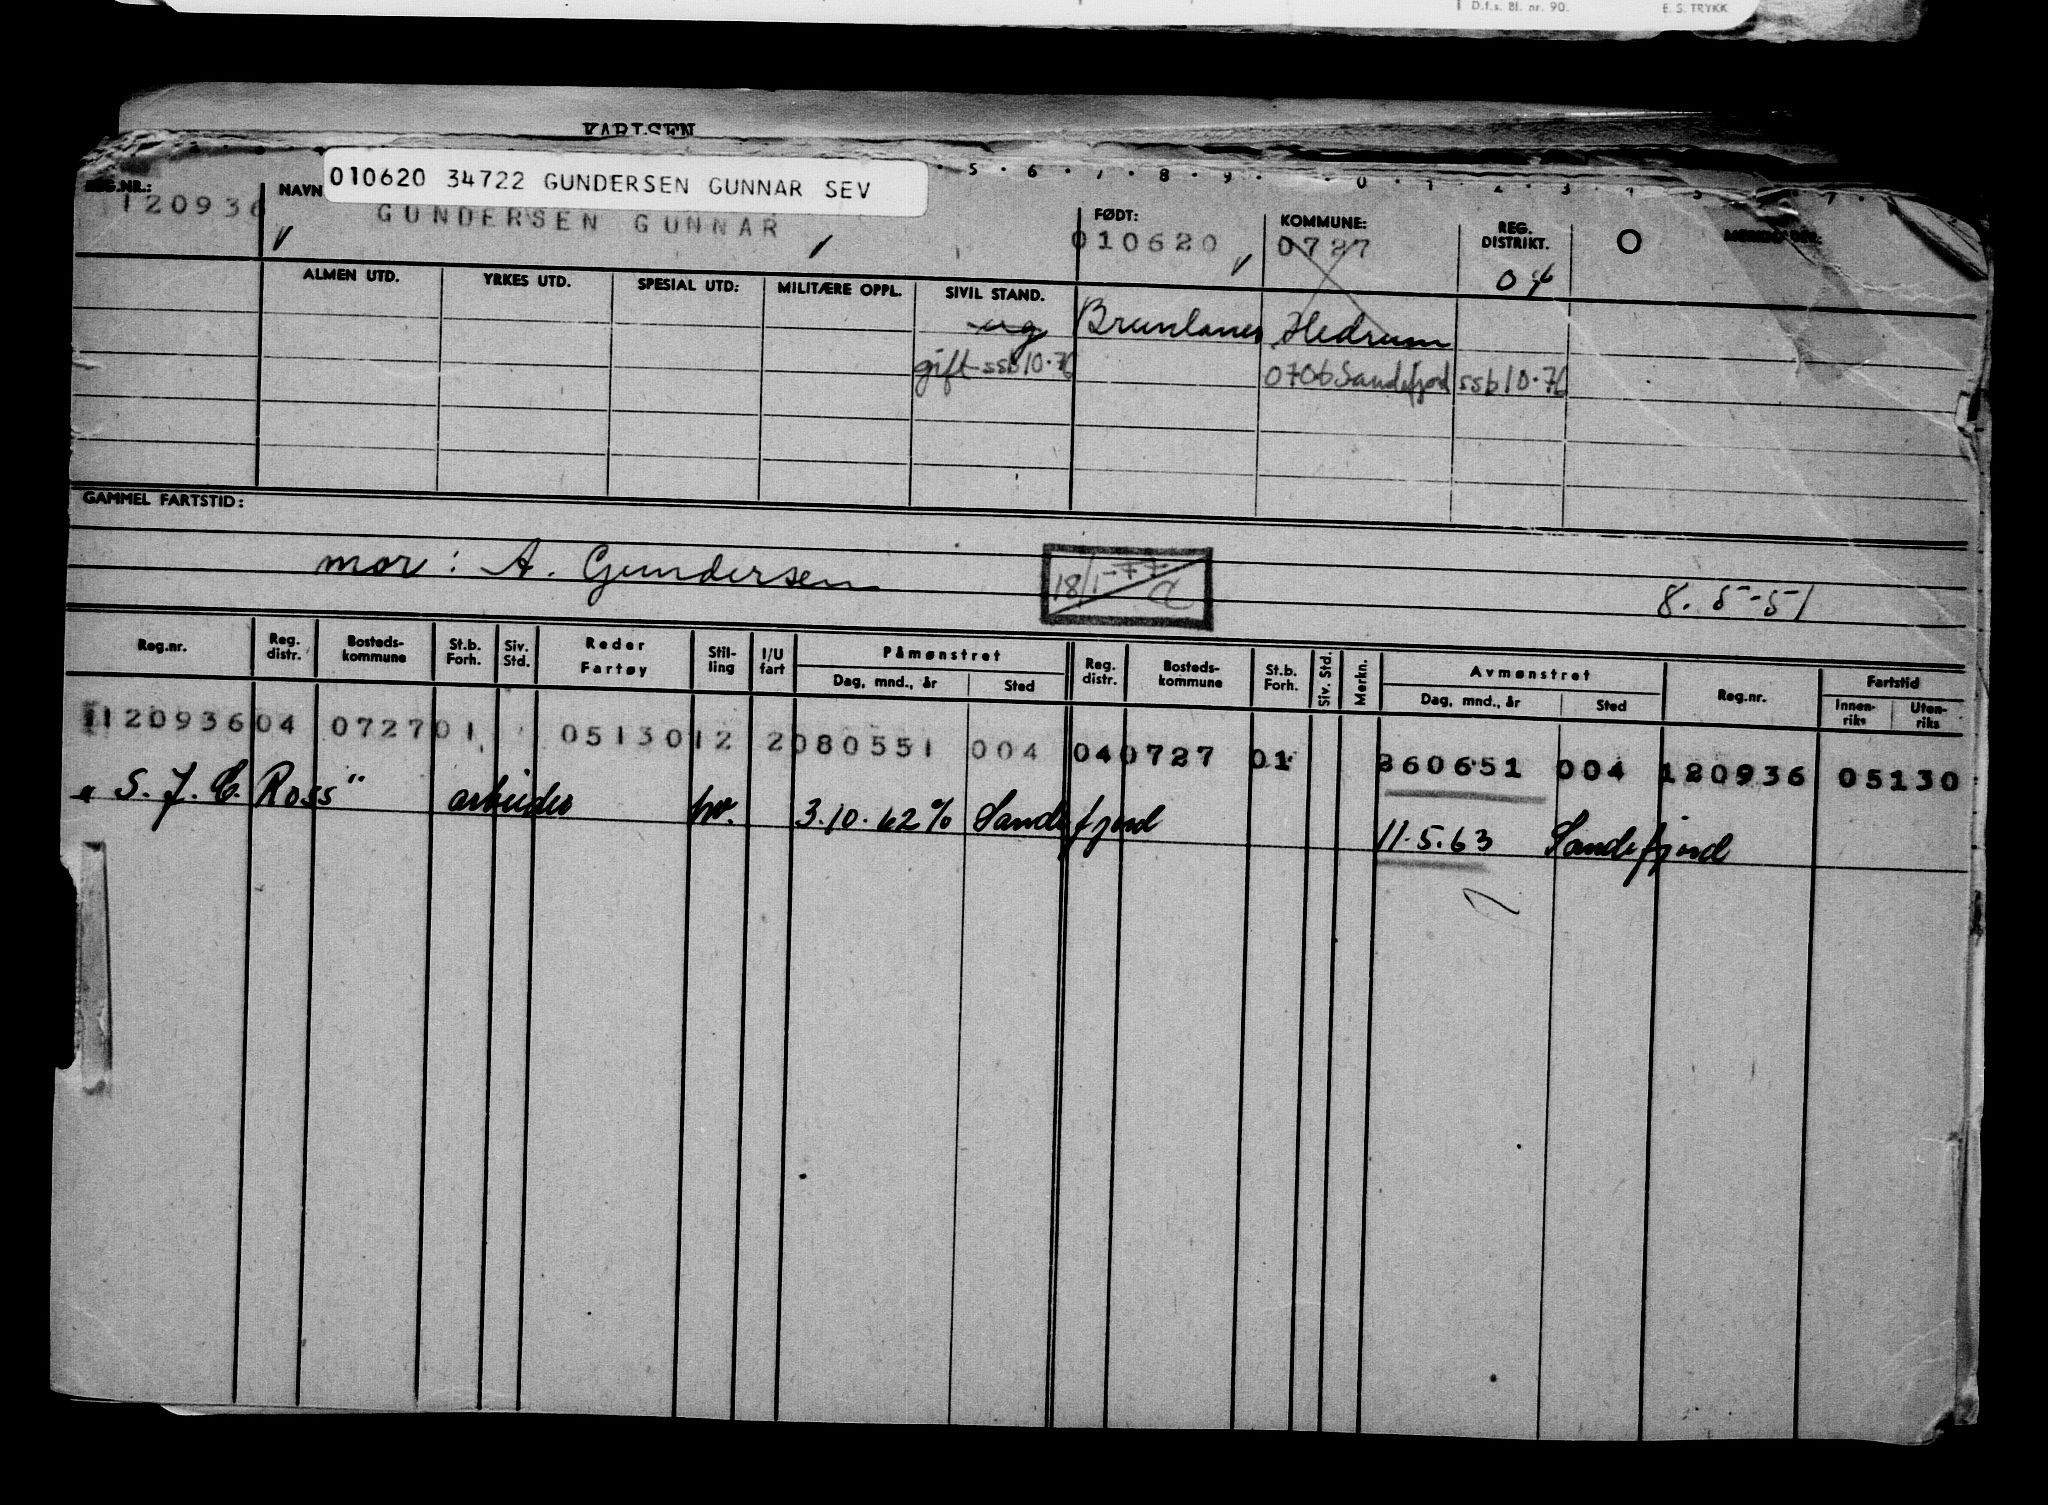 D.f.s. Bl. nr. 90. E. S. TRYKK
KARLSEN
5 . 6 . 7 . 8 . 9 . 0 . 1 . 2 . 3 . 4 . 5
010620 34722 GUNDERSEN GUNNAR SEV
REG.NR.: NAVN FØDT: KOMMUNE: REG. DISTRIKT. MERKNADER:
120936 GUNDERSEN GUNNAR 010620 0727 04
ALMEN UTD. YRKES UTD. SPESIAL UTD: MILITÆRE OPPL. SIVIL STAND.
ug Brunlanes Hedrum
gift ssb10.76 0706 Sandefjord ssb10.76
GAMMEL FARTSTID:
mor: A. Gundersen 18/1-77 8.5-51
Reg.nr. Reg. distr. Bosteds-kommune St.b. Forh. Siv. Std. Reder Fartøy Stil-ling I/U fart Påmønstret Reg. distr. Bosteds-kommune St.b. Forh. Siv. Std. Merkn. Avmønstret Reg.nr. Fartstid
Dag, mnd., år Sted Dag, mnd., år Sted Innen-riks Uten-riks
120936 04 0727 01 05130 12 2 080551 004 04 0727 01 260651 004 120936 05130
"S. J. E. Ross" arbeider hv. 3.10.62 % Sandefjord 11.5.63 Sandefjord